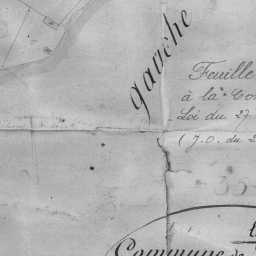 gauche
Feuille
à la Co
Loi du 27
(J.O. du 2
35
Commune de